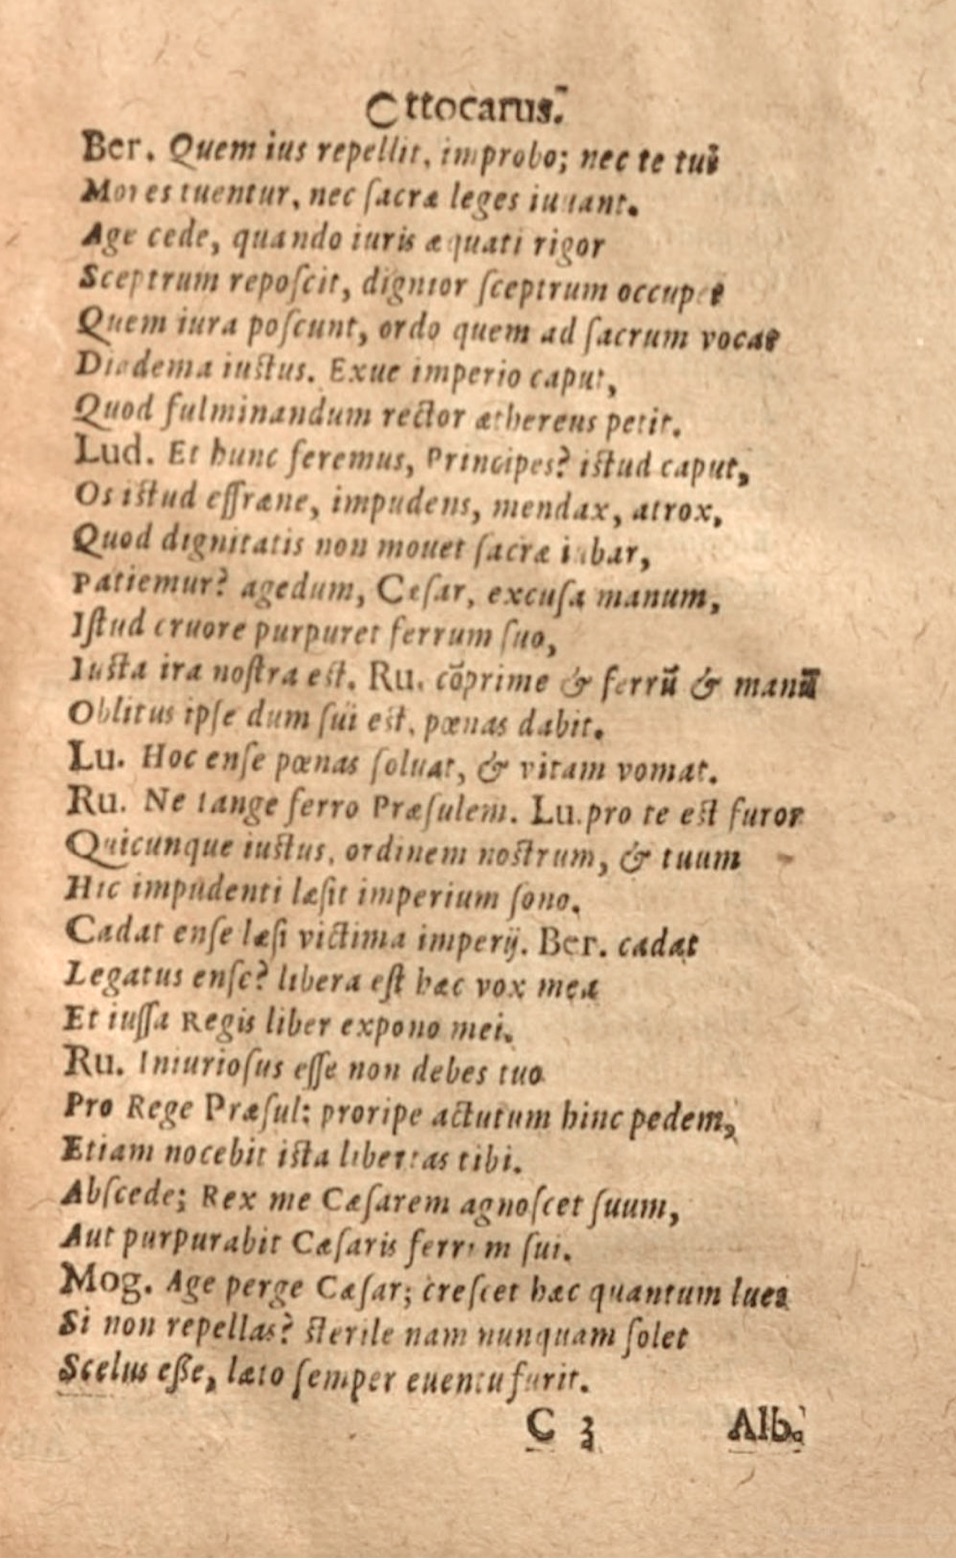 Ottocarus.
Ber. Quem ius repellit, improbo; nec te tui
Mores tuentur, nec ſacræ leges iuuant.
Age cede, quando iuris æquati rigor
Sceptrum repoſcit, dignior ſceptrum occupet
Quem iura poſcunt, ordo quem ad ſacrum vocat
Diadema iustus. Exue imperio caput,
Quod fulminandum rector æthereus petit.
Lud. Et hunc feremus, Principes? istud caput,
Os istud effræne, impudens, mendax, atrox,
Quod dignitatis non mouet ſacræ iubar,
Patiemur? agedum, Cæſar, excuſa manum,
Iſtud cruore purpuret ferrum ſuo,
Iusta ira noſtra est. Ru. cõprime & ferrũ & manũ
Oblitus ipſe dum ſui est, pœnas dabit.
Lu. Hoc enſe pœnas ſoluat, & vitam vomat.
Ru. Ne tange ferro Præſulem. Lu. pro te est furor
Quicunque iustus, ordinem nostrum, & tuum
Hic impudenti læſit imperium ſono.
Cadat enſe læſi victima imperij. Ber. cadat
Legatus enſe? libera eſt hæc vox mea
Et iuſſa Regis liber expono mei.
Ru. Iniurioſus eſſe non debes tuo
Pro Rege Præſul: proripe actutum hinc pedem,
Etiam nocebit ista libertas tibi.
Abſcede; Rex me Cæſarem agnoſcet ſuum,
Aut purpurabit Cæſaris ferrum ſui.
Mog. Age perge Cæſar; creſcet hæc quantum lues
Si non repellas? sterile nam nunquam ſolet
Scelus eße, læto ſemper euentu furit.
C 3 Alb.